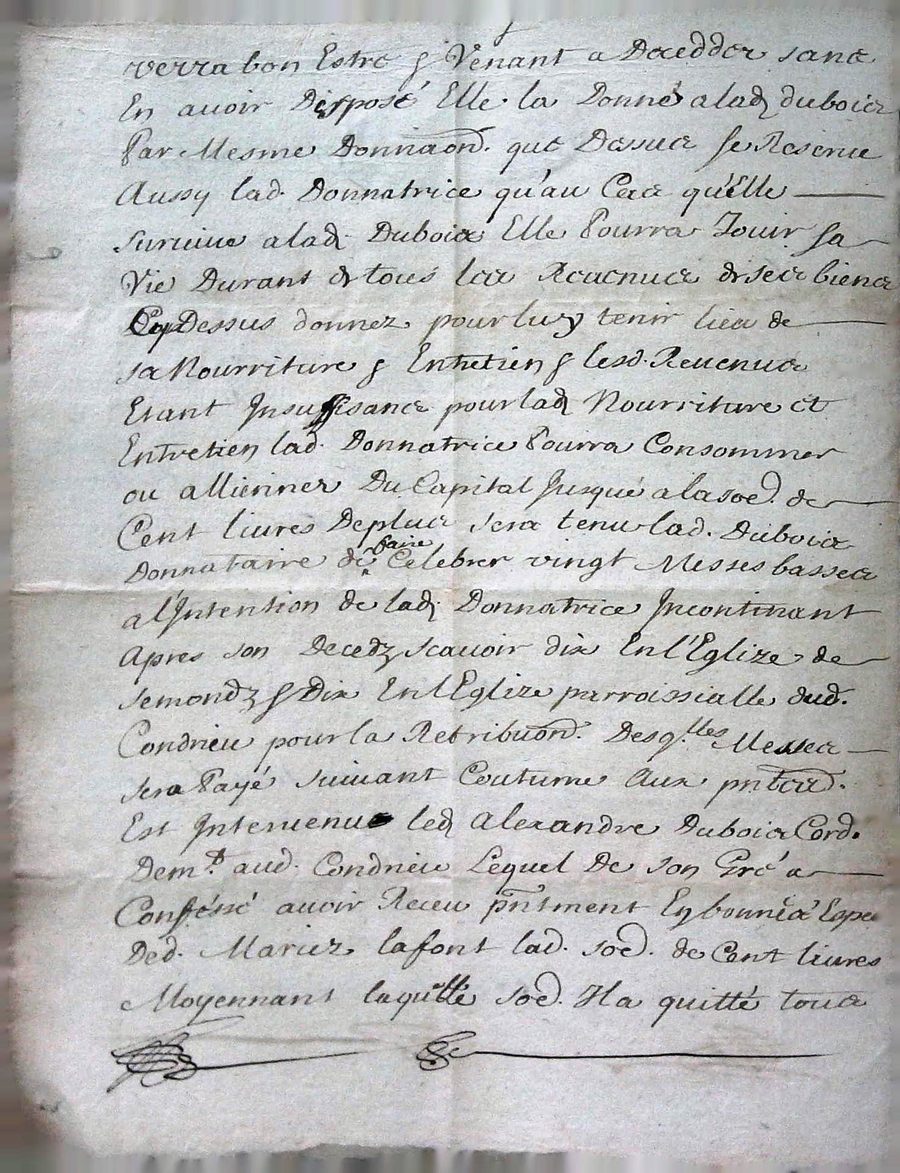 verra bon Estre & Venant a Decedder sans
En avoir Disposé Elle la Donné a lad. duboies
Par Mesme Donnaon. que Dessus se Reserve
Aussy lad. Donnatrice qu'au Cas qu'Elle
survive a lad. Dubois Elle Pourra Jouir sa
Vie Durant de tous les Revenus de ses biens
Cy Dessus donnez pour luy tenir lieu de
sa Nourriture & Entretien & lesd. Revenus
Etant Insuffisans pour lad. Nourriture et
Entretien lad. Donnatrice Pourra Consommer
ou alliénner Du Capital Jusqué a la soe. de
Cent livres Deplus sera tenu lad. Dubois
Donnataire de faire Celebrer vingt Messes basses
a l'Intention de lad. Donnatrice Incontinant
Apres son Decedz scavoir dix En l'Eglize de
semondz & Dix En l'Eglize parroissialle dud.
Condrieu pour la Retribuon. Desq.lles Messes
sera Payé suivant Coutume Aux pntes.
Est Intervenu led. Alexandre Dubois Cord.
Dem.t aud. Condrieu Lequel De son Gré a
Confessé avoir Receu pn̄tment En bonnes Espe
Ded. Mariez lafont lad. soe. de Cent livres
Moyennant laquelle soe. Il a quitté tous